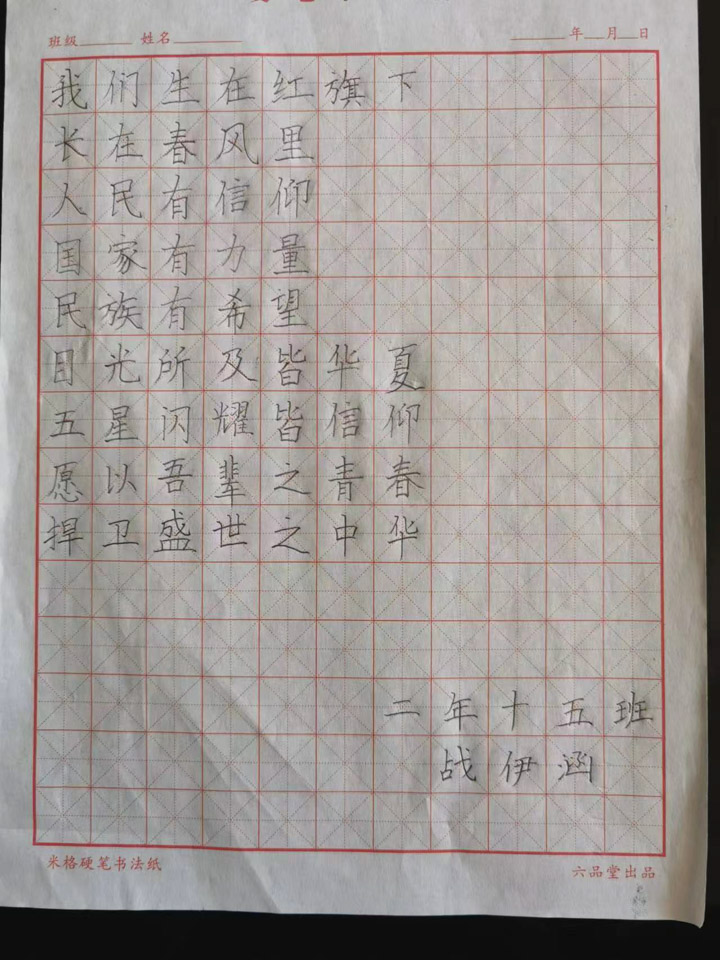 班级 姓名 年 月 日
我们生在红旗下
长在春风里
人民有信仰
国家有力量
民族有希望
目光所及皆华夏
五星闪耀皆信仰
愿以吾辈之青春
捍卫盛世之中华
二年十五班
战伊涵
米格硬笔书法纸 六品堂出品